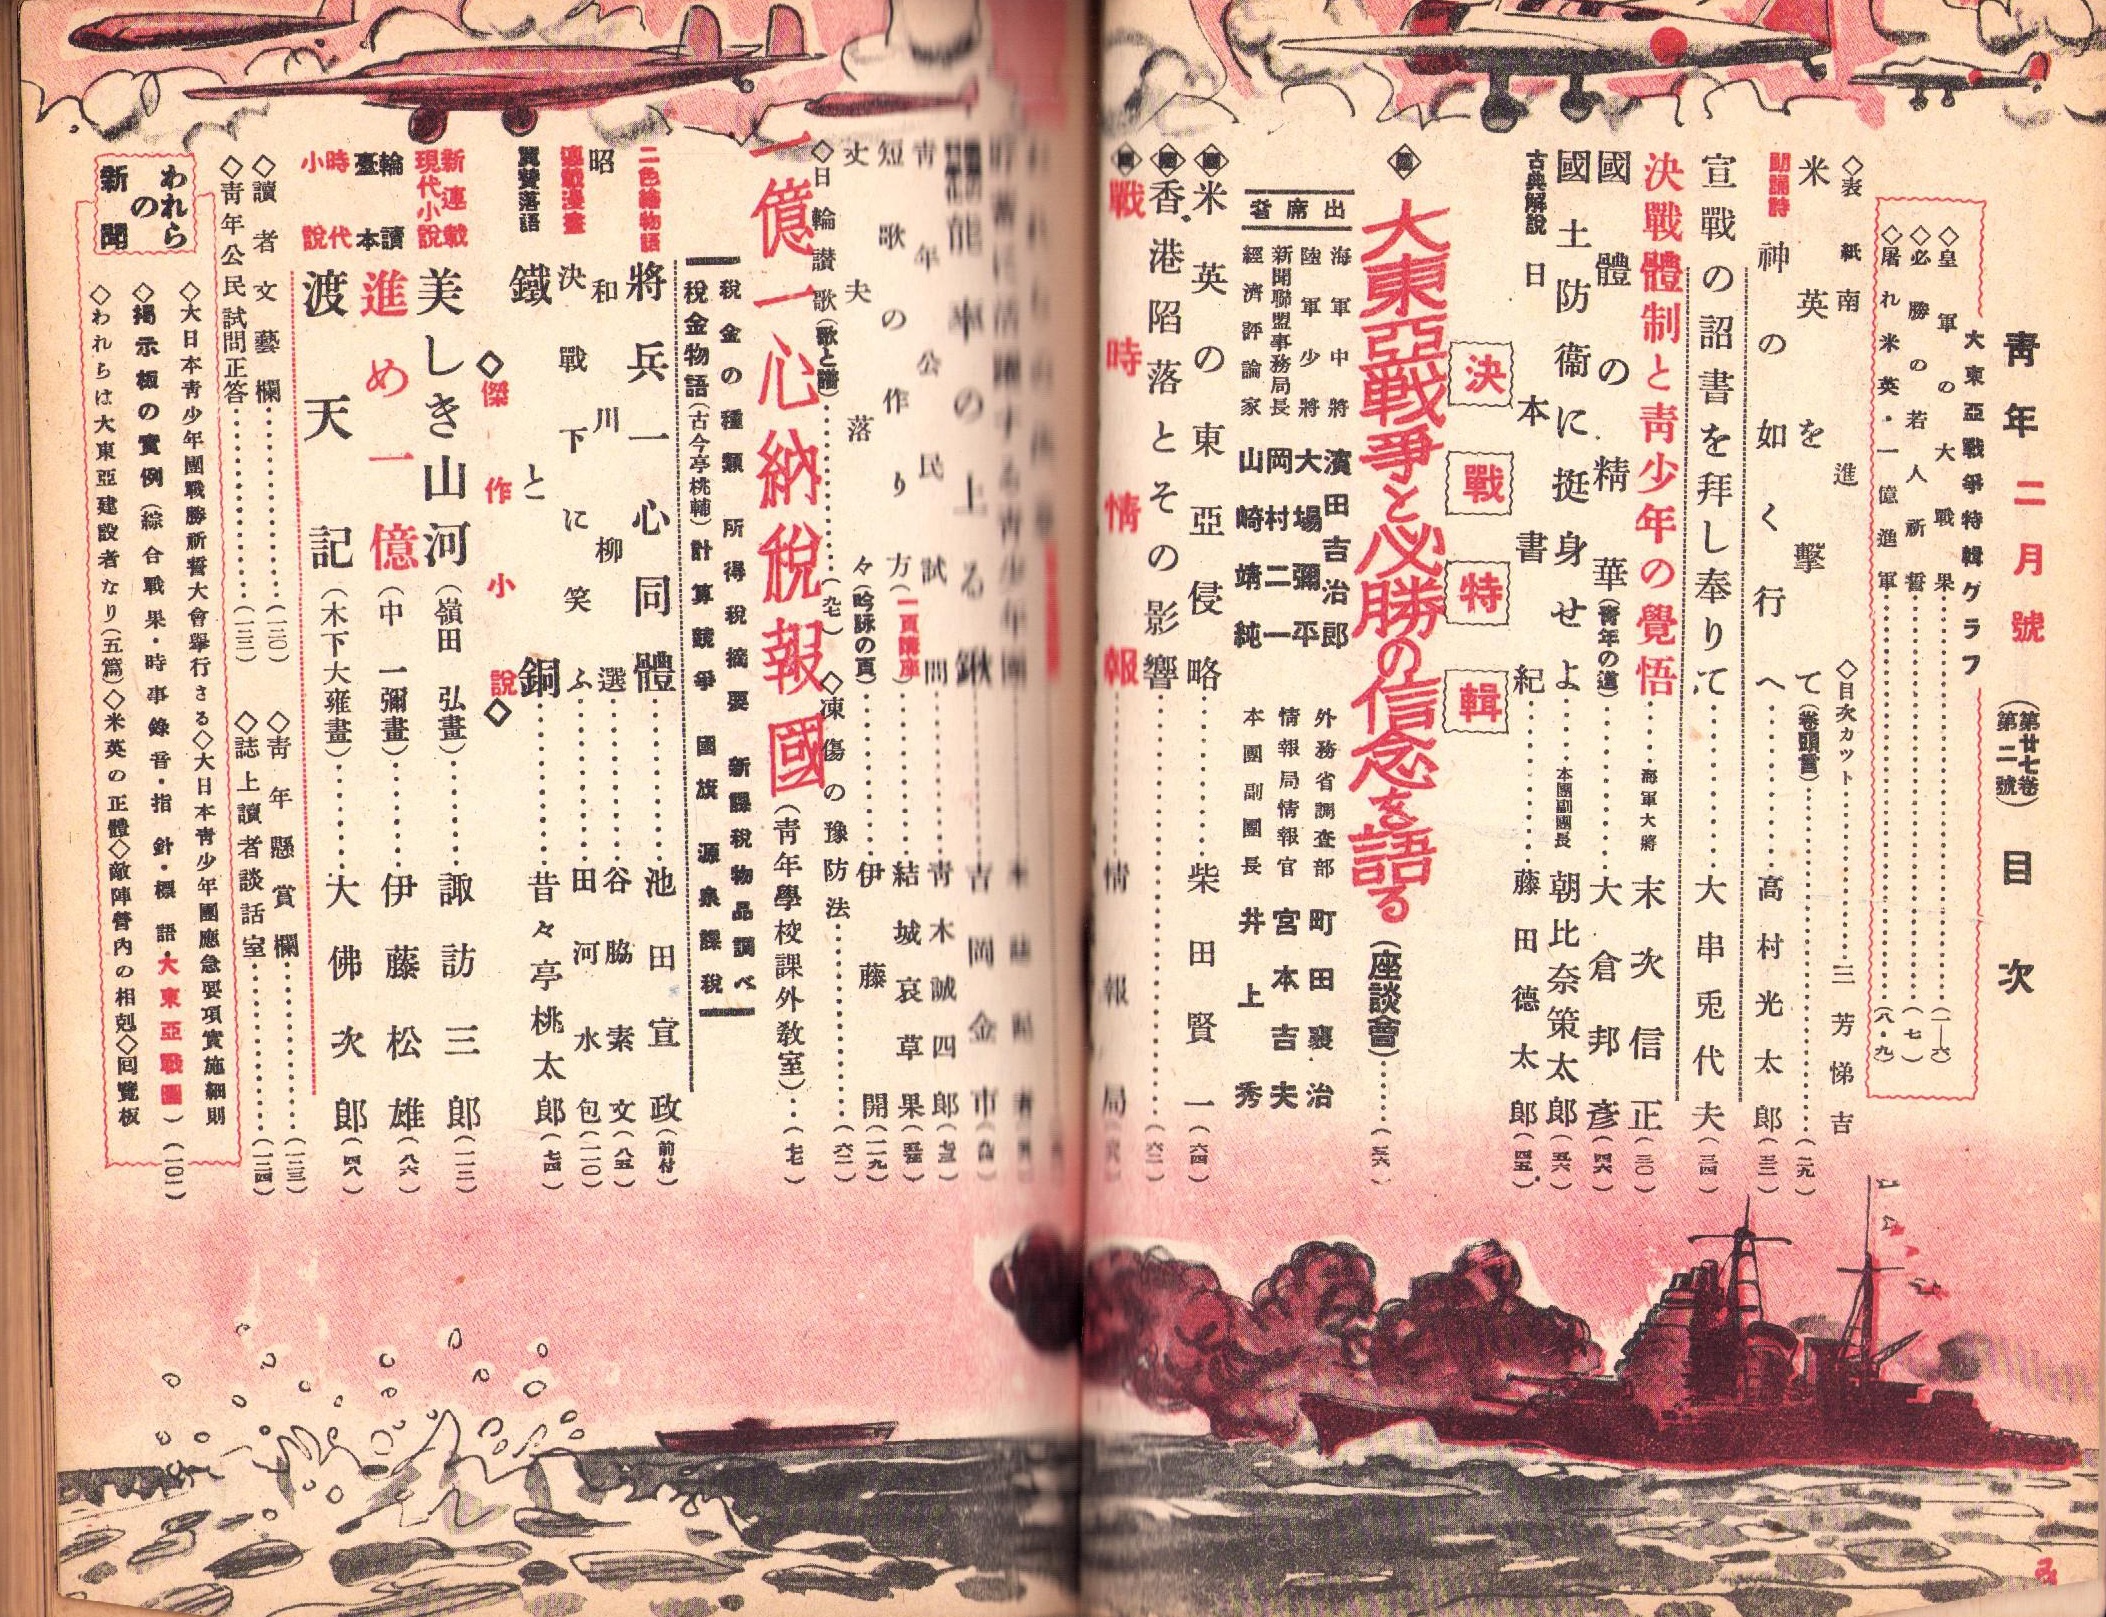 靑年 二月號 (第廿七卷 第二號) 目次
大東亞戰爭特輯グラフ
◇皇軍の大戰果……(一―六)
◇必勝の若人祈誓……(七)
◇屠れ米英・一億進軍……(八・九)
◇表紙 南進 ◇目次カツト……三芳悌吉
米英を擊て(卷頭言)……(二九)
朗誦詩 神の如く行へ……高村光太郎(三二)
宣戰の詔書を拜し奉りて……大串兎代夫(三四)
決戰體制と靑少年の覺悟……海軍大將 末次信正(三〇)
國體の精華(靑年の道)……大倉邦彥(四六)
國土防衞に挺身せよ……本團副團長 朝比奈策太郎(五六)
古典解說 日本書紀……藤田德太郎(四五)
決戰特輯
大東亞戰爭と必勝の信念を語る(座談會)……(三六)
出席者
海軍中將 濱田吉治郎
陸軍少將 大場彌平
新聞聯盟事務局長 岡村二一
經濟評論家 山崎靖純
外務省調査部 町田襄治
情報局情報官 宮本吉夫
本團副團長 井上秀
米英の東亞侵略……柴田賢一(六四)
香港陷落とその影響……(六二)
戰時情報……情報局
龍率の上る鍬……吉岡金市
靑年公民試問……靑木誠四郎
短歌の作り方(一頁講座)……結城哀草果
丈夫落々(吟詠の頁)……伊藤開(一一九)
◇日輪讃歌(歌と譜)……(九七) ◇凍傷の豫防法……(六一)
一億一心納稅報國(靑年學校課外敎室)……(七七)
稅金の種類 所得稅摘要 新課稅物品調べ
稅金物語(古今亭桃輔) 計算競爭 國旗 源泉課稅
二色繪物語 將兵一心同體……池田宣政(前付)
昭和川柳選……谷脇素文(八五)
連戰漫畫 決戰下に笑ふ……田河水包(一一〇)
翼贊落語 鐵と銅……昔々亭桃太郎(七四)
◇傑作小說◇
新連載現代小說 美しき山河(嶺田弘畫)……諏訪三郎(一一二)
輪讀臺本 進め一億(中一彌畫)……伊藤松雄(八六)
時代小說 渡天記(木下大雍畫)……大佛次郎(四八)
◇讀者文藝欄……(一二〇) ◇靑年懸賞欄……(一二三)
◇靑年公民試問正答……(一二二) ◇誌上讀者談話室……(一二四)
われらの新聞
◇大日本靑少年團戰勝祈誓大會擧行さる◇大日本靑少年團應急要項實施細則
◇揭示板の實例(綜合戰果・時事錄音・指針・標語・大東亞戰圖)(一〇一)
◇われらは大東亞建設者なり(五篇)◇米英の正體◇敵陣營內の相剋◇回覽板